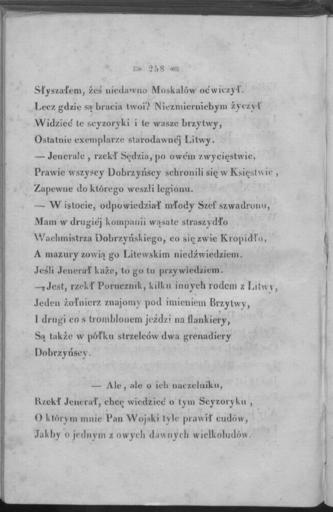 258
Słyszałem, żeś niedawno Moskalów oćwiczył.
Lecz gdzie są bracia twoi? Niezmierniebym życzył
Widzieć te scyzoryki i te wasze brzytwy,
Ostatnie exemplarze starodawnéj Litwy.
— Jenerale, rzekł Sędzia, po owém zwycięstwie,
Prawie wszyscy Dobrzyńscy schronili się w Księstwie,
Zapewne do którego weszli legionu.
— W istocie, odpowiedział młody Szef szwadronu,
Mam w drugiéj kompanii wąsate straszydło
Wachmistrza Dobrzyńskiego, co się zwie Kropidło,
A mazury zowią go Litewskim niedźwiedziem.
Jeśli Jenerał każe, to go tu przywiedziem.
— Jest, rzekł Porucznik, kilku innych rodem z Litwy,
Jeden żołnierz znajomy pod imieniem Brzytwy,
I drugi co s tromblonem jeździ na flankiery,
Są także w półku strzelców dwa grenadiery
Dobrzyńscy.
— Ale, ale o ich naczelniku,
Rzekł Jenerał, chcę wiedzieć o tym Scyzoryku,
O którym mnie Pan Wojski tyle prawił cudów,
Jakby o jednym z owych dawnych wielkoludów.